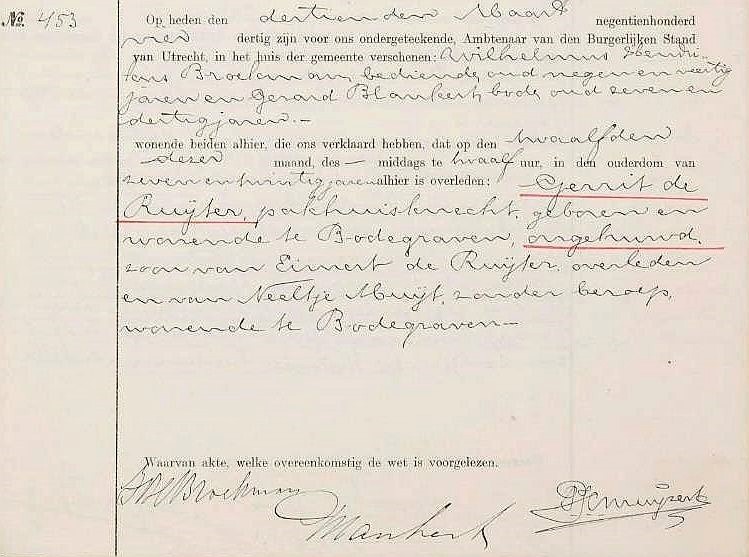 No. 453
Op heden den dertienden Maart negentienhonderd
vier dertig zijn voor ons ondergeteekende, Ambtenaar van den Burgerlijken Stand
van Utrecht, in het huis der gemeente verschenen: Wilhelmus Hendri-
cus Broekman, bediende, oud negen en veertig
jaren en Gerard Blankert, bode, oud zeven en
dertig jaren.—
wonende beiden alhier, die ons verklaard hebben, dat op den twaalfden
dezer maand, des — middags te twaalf uur, in den ouderdom van
zeven en twintig jaren alhier is overleden: Gerrit de
Ruijter, pakhuisknecht, geboren en
wonende te Bodegraven, ongehuwd,
zoon van Eimert de Ruijter, overleden
en van Neeltje Muijt, zonder beroep,
wonende te Bodegraven—
Waarvan akte, welke overeenkomstig de wet is voorgelezen.
Broekman
Blankert